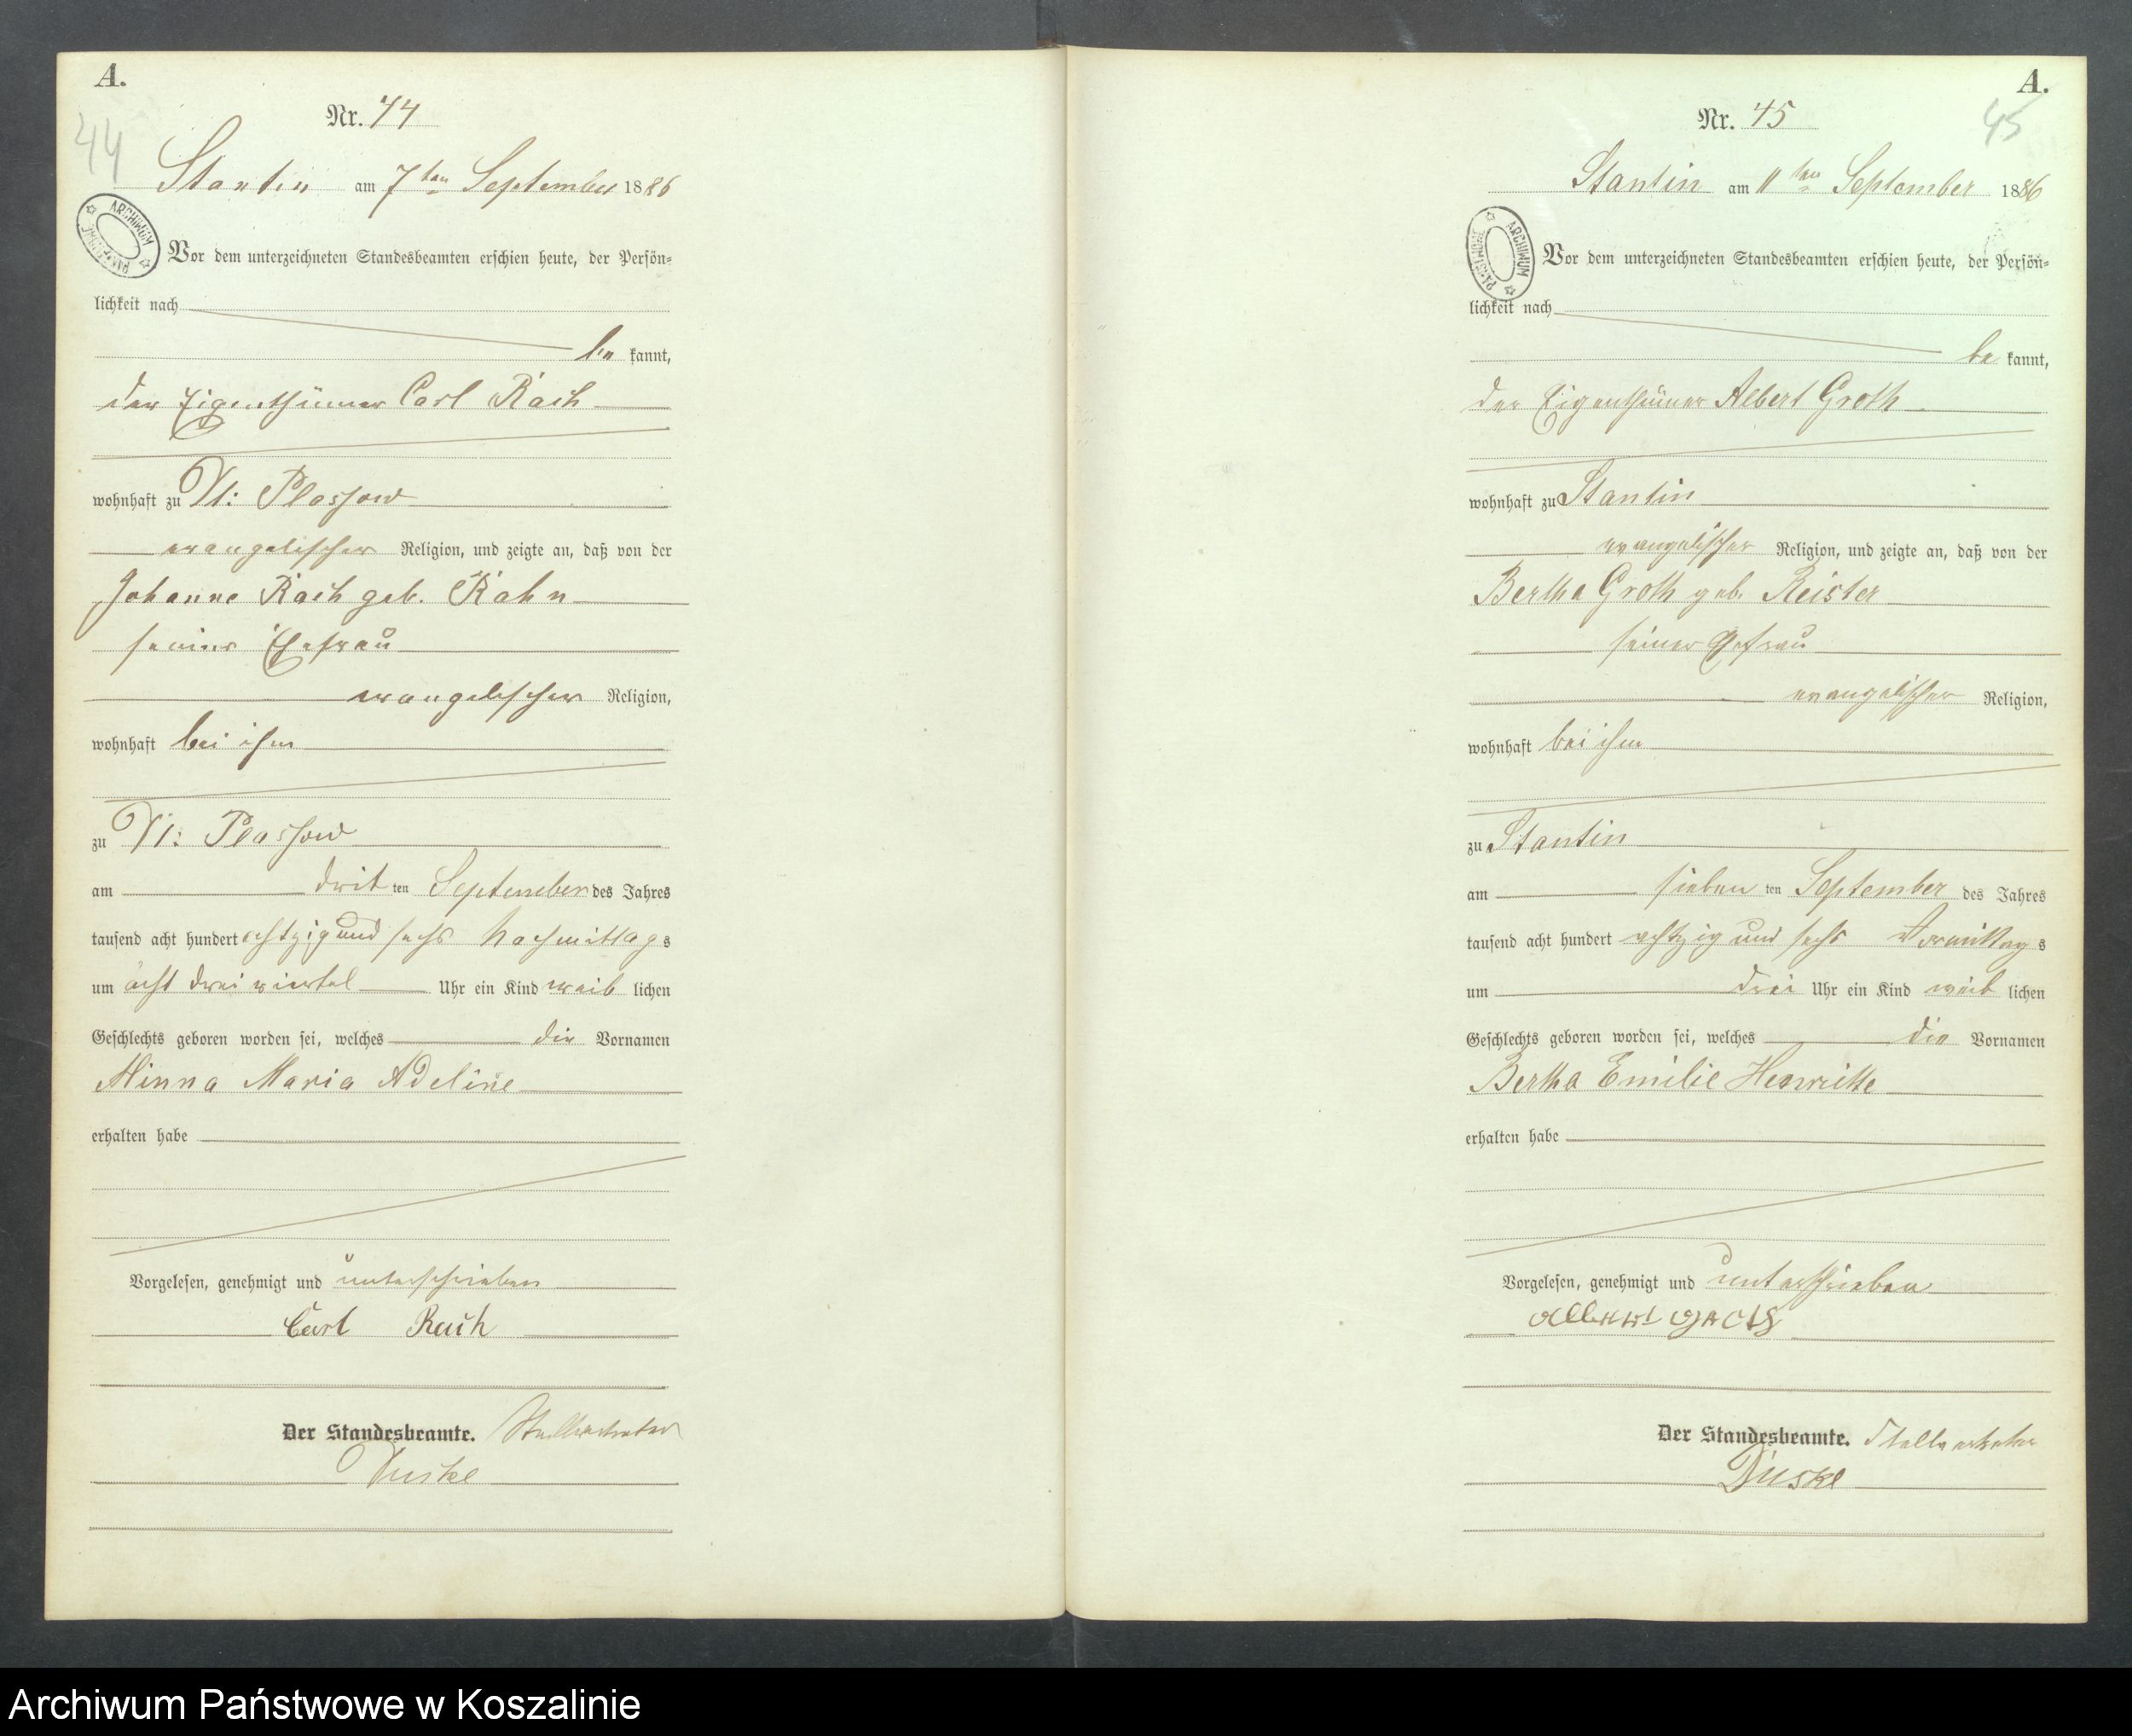 A.
Nr. 44
44
Stantin am 7ten September 1886
ARCHIWUM PAŃSTWOWE
Vor dem unterzeichneten Standesbeamten erschien heute, der Persön=
lichkeit nach
be kannt,
der Eigenthümer Carl Rach
wohnhaft zu Kl: Plassow
evangelischer Religion, und zeigte an, daß von der
Johanne Rach geb. Kahn
seiner Ehefrau
evangelischer Religion,
wohnhaft bei ihm
zu Kl: Plassow
am dritten September des Jahres
tausend acht hundert achtzig und sechs Nachmittags
um acht dreiviertel Uhr ein Kind weiblichen
Geschlechts geboren worden sei, welches die Vornamen
Minna Maria Adeline
erhalten habe
Vorgelesen, genehmigt und unterschrieben
Carl Rach
Der Standesbeamte. Stellvertreter
Duske
A.
Nr. 45
45
Stantin am 11ten September 1886
ARCHIWUM PAŃSTWOWE
Vor dem unterzeichneten Standesbeamten erschien heute, der Persön=
lichkeit nach
be kannt,
der Eigenthümer Albert Groth
wohnhaft zu Stantin
evangelischer Religion, und zeigte an, daß von der
Bertha Groth geb. Reister
seiner Ehefrau
evangelischer Religion,
wohnhaft bei ihm
zu Stantin
am siebenten September des Jahres
tausend acht hundert achtzig und sechs Vormittags
um drei Uhr ein Kind weiblichen
Geschlechts geboren worden sei, welches die Vornamen
Bertha Emilie Henriette
erhalten habe
Vorgelesen, genehmigt und unterschrieben
Albert Groth
Der Standesbeamte. Stellvertreter
Duske
Archiwum Państwowe w Koszalinie